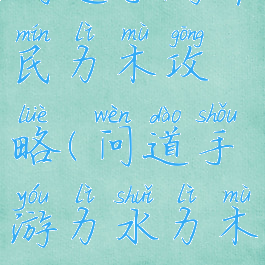 mín lì mù gōng
民力木攻
lüè wèn dào shǒu
略(问道手
yóu lì shuǐ lì mù
游力水力木